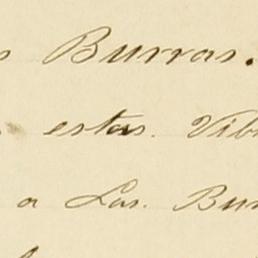 Burras.
estas. Vib
a Las. Bur